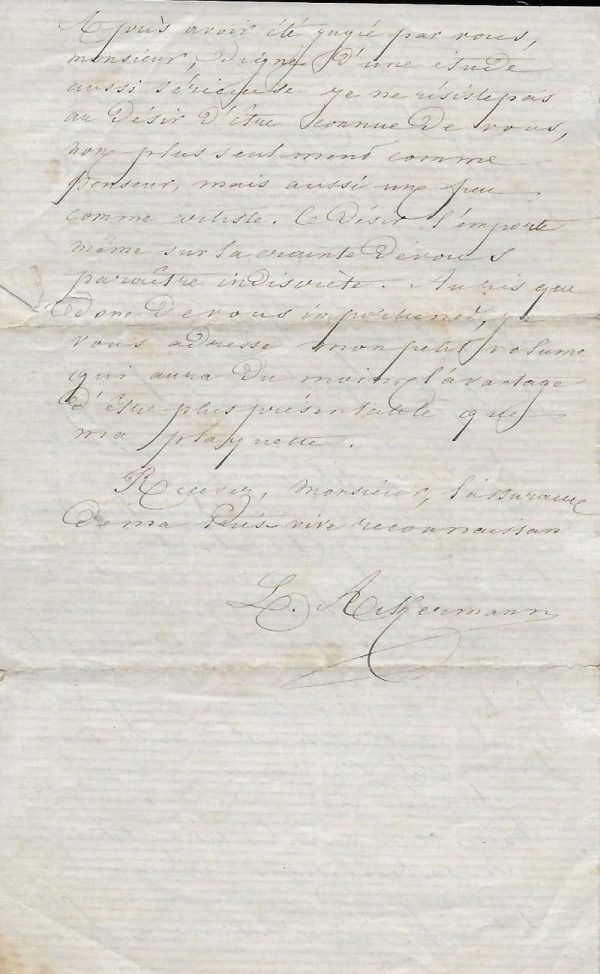 Après avoir été jugée par vous,
monsieur, digne d'une étude
aussi sérieuse je ne résiste pas
au désir d'être connue de vous,
non plus seulement comme
penseur, mais aussi un peu
comme artiste. Ce désir l'emporte
même sur la crainte de vous
paraître indiscrète. Au risque
donc de vous importuner, je
vous adresse mon petit volume
qui aura du moins l'avantage
d'être plus présentable que
ma plaquette.
Recevez, monsieur, l'assurance
de ma très vive reconnaissan
L. Ackermann